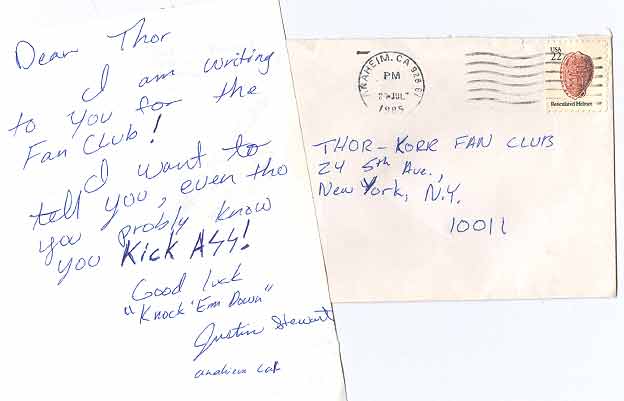 Dear Thor
I am writing
to you for the
Fan Club!
I want to
tell you, even tho
you probly know
you Kick ASS!
Good luck
"Knock 'Em Down"
Justin Stewart
anahiem Cal
ANAHEIM, CA
PM
JUL
1985
USA
22
Reticulated Helmet
THOR-KORR FAN CLUB
24 5th Ave.,
New York, N.Y.
10011